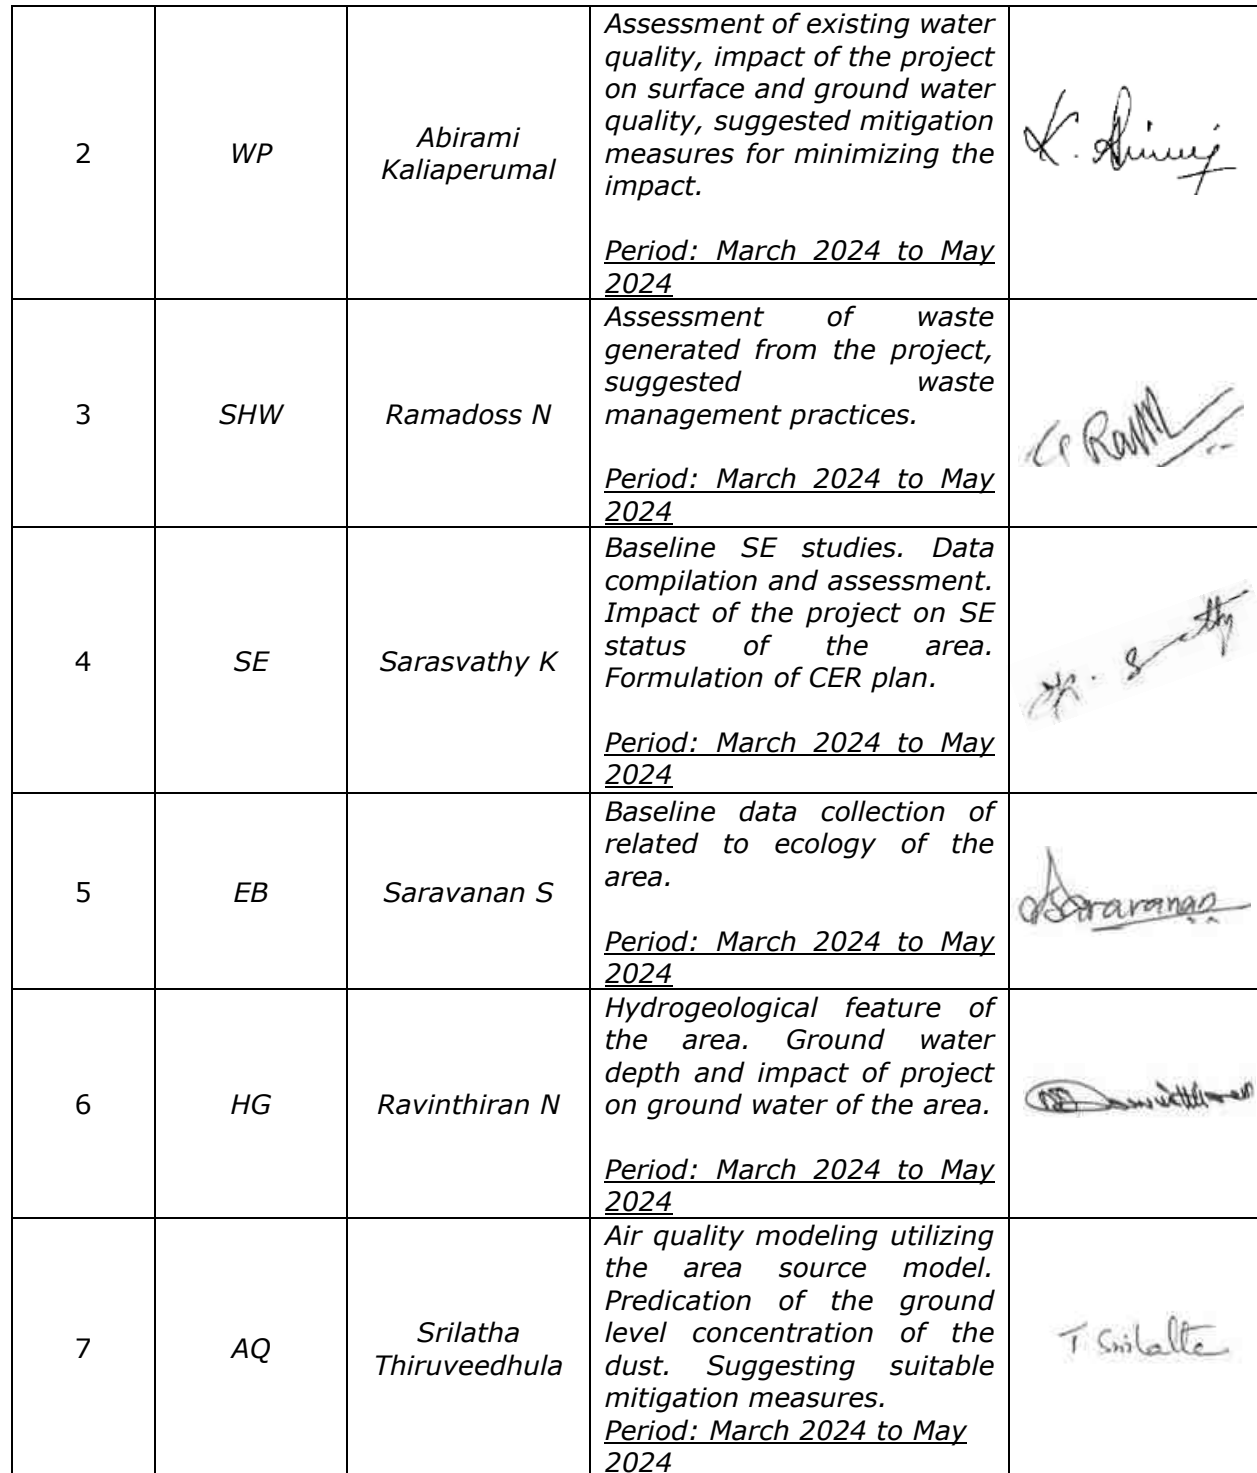 2
WP
Abirami
Kaliaperumal
Assessment of existing water
quality, impact of the project
on surface and ground water
quality, suggested mitigation
measures for minimizing the
impact.
Period: March 2024 to May
2024
K.
3
SHW
Ramadoss N
Assessment of waste
generated from the project,
suggested waste
management practices.
Period: March 2024 to May
2024
4
SE
Sarasvathy K
Baseline SE studies. Data
compilation and assessment.
Impact of the project on SE
status of the area.
Formulation of CER plan.
Period: March 2024 to May
2024
5
EB
Saravanan S
Baseline data collection of
related to ecology of the
area.
Period: March 2024 to May
2024
Saravanan
6
HG
Ravinthiran N
Hydrogeological feature of
the area. Ground water
depth and impact of project
on ground water of the area.
Period: March 2024 to May
2024
7
AQ
Srilatha
Thiruveedhula
Air quality modeling utilizing
the area source model.
Predication of the ground
level concentration of the
dust. Suggesting suitable
mitigation measures.
Period: March 2024 to May
2024
T.